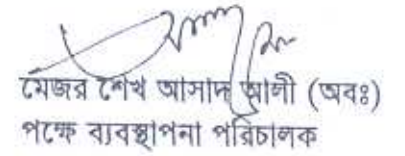 মেজর শেখ আসাদ আলী (অবঃ)
পক্ষে ব্যবস্থাপনা পরিচালক